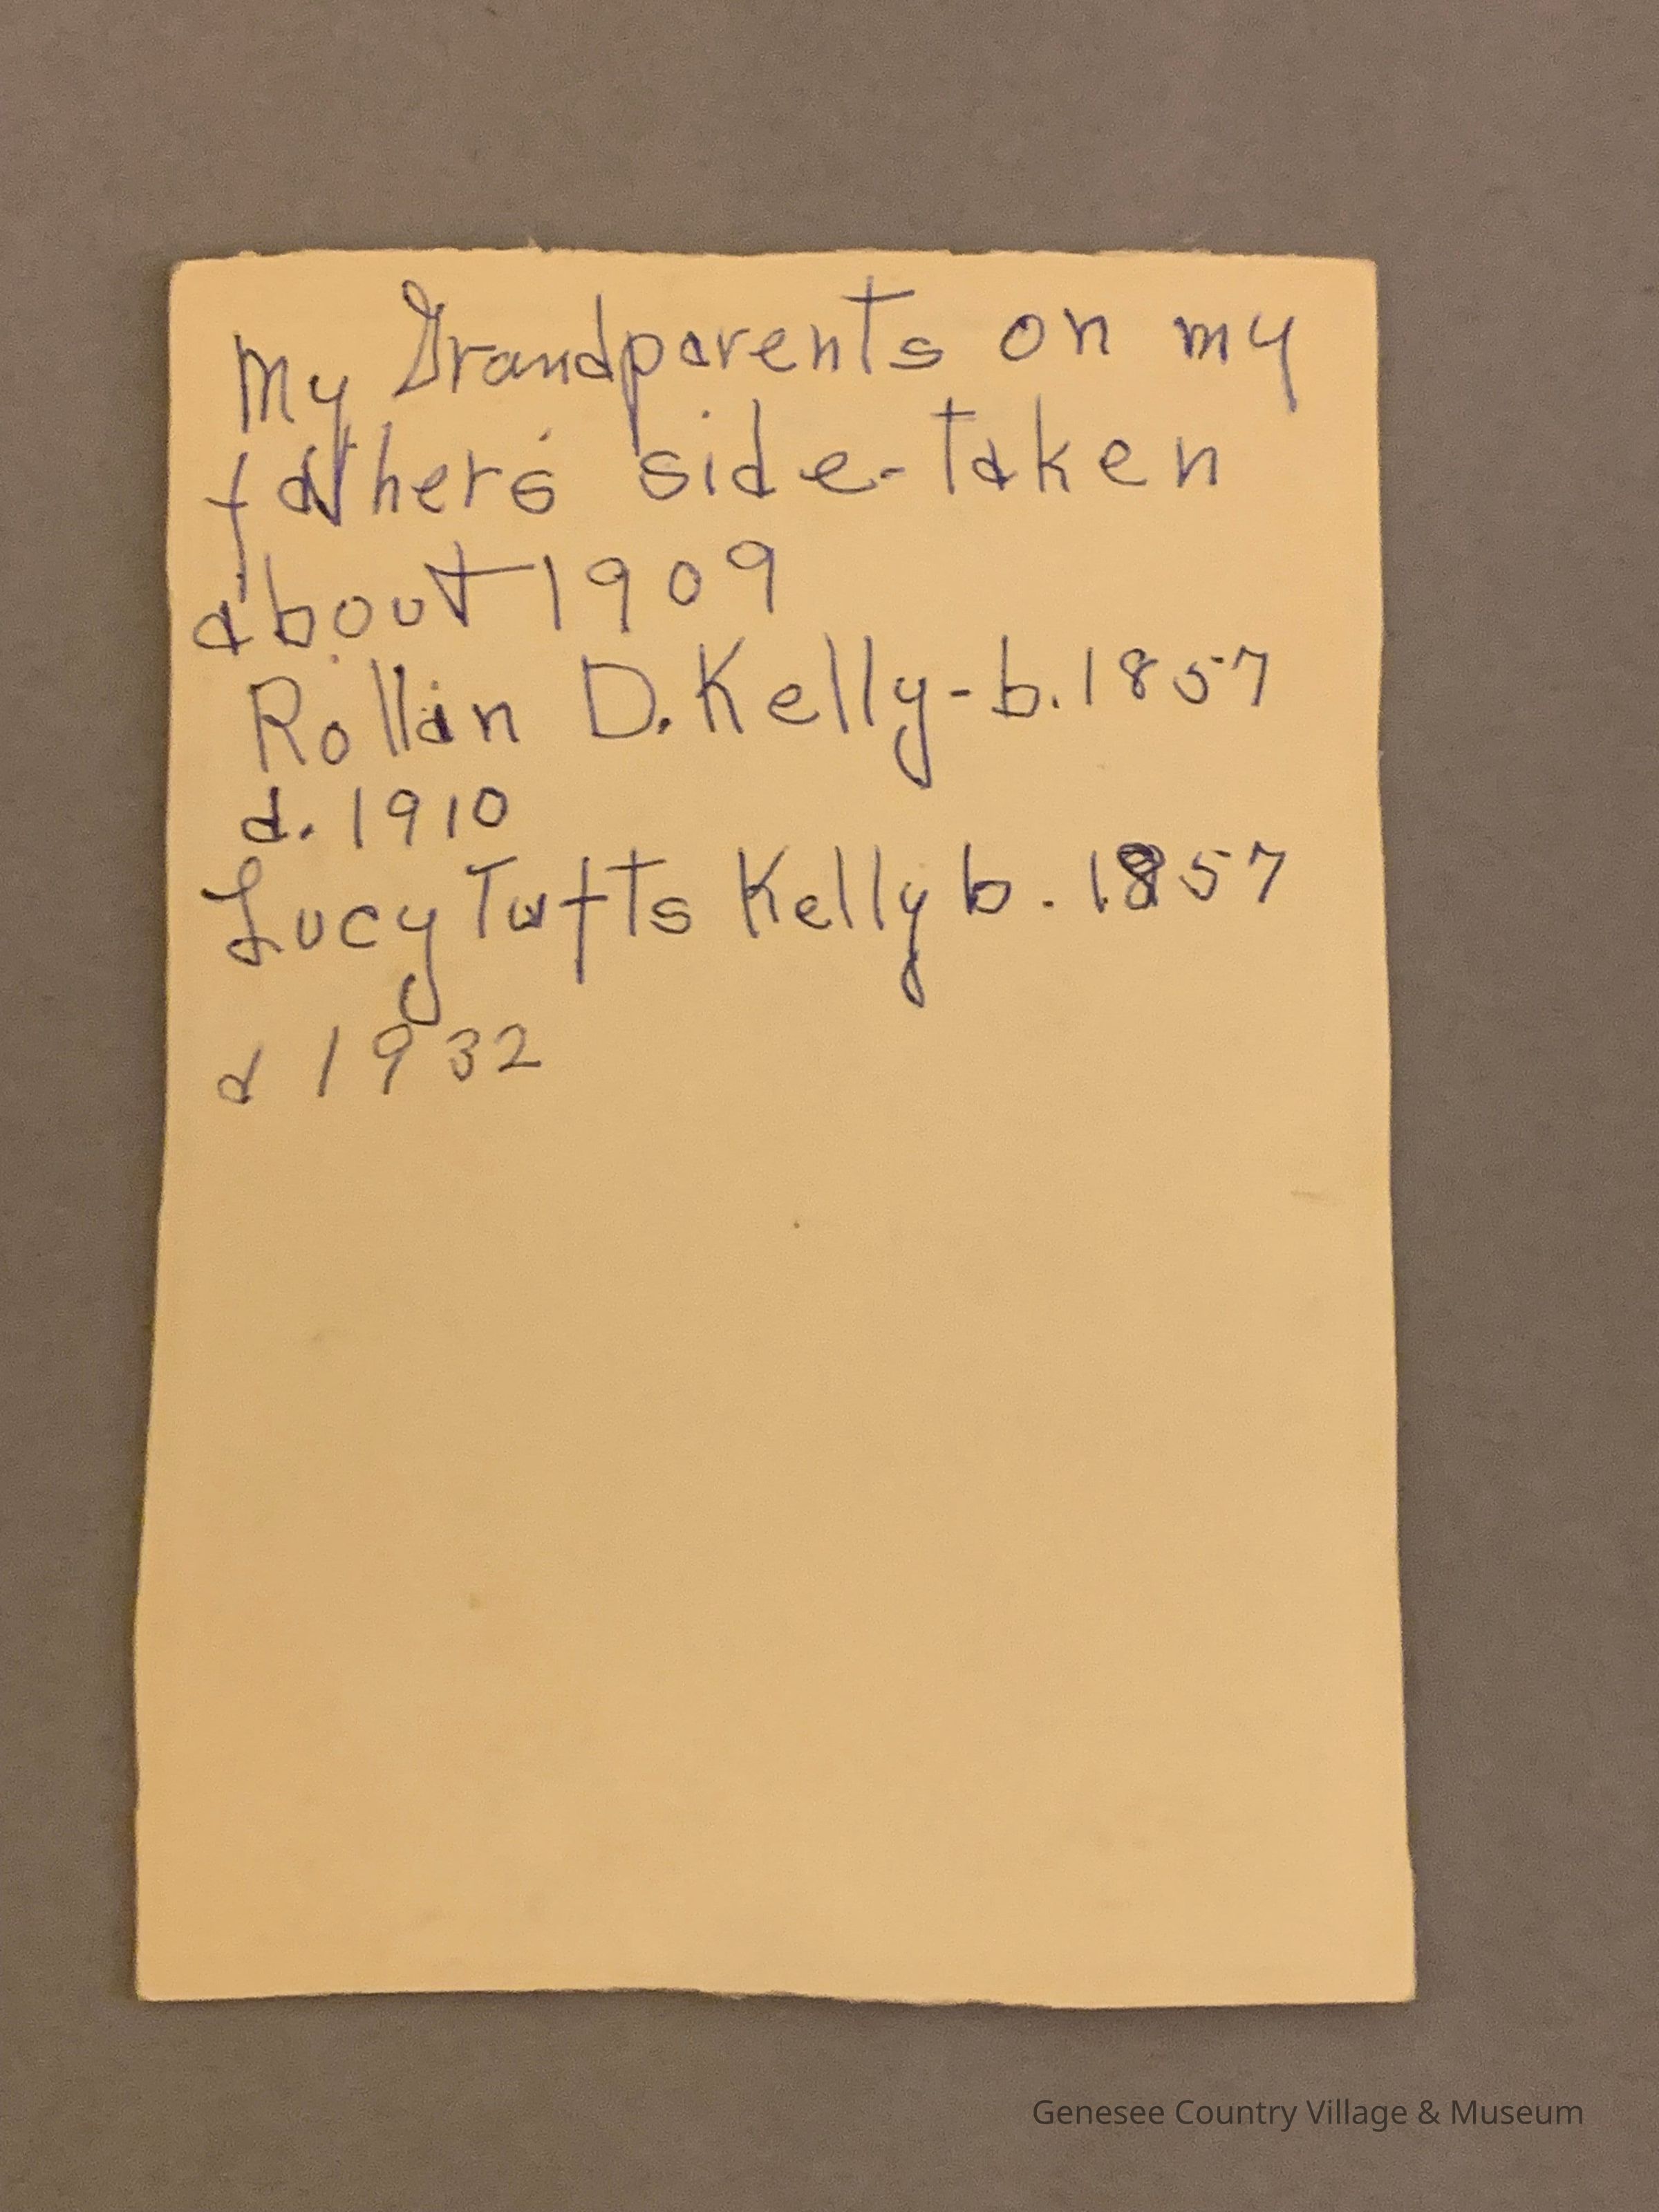 My Grandparents on my
father's side-taken
about 1909
Rollin D. Kelly - b. 1857
d. 1910
Lucy Tufts Kelly b. 1857
d 1932
Genesee Country Village & Museum